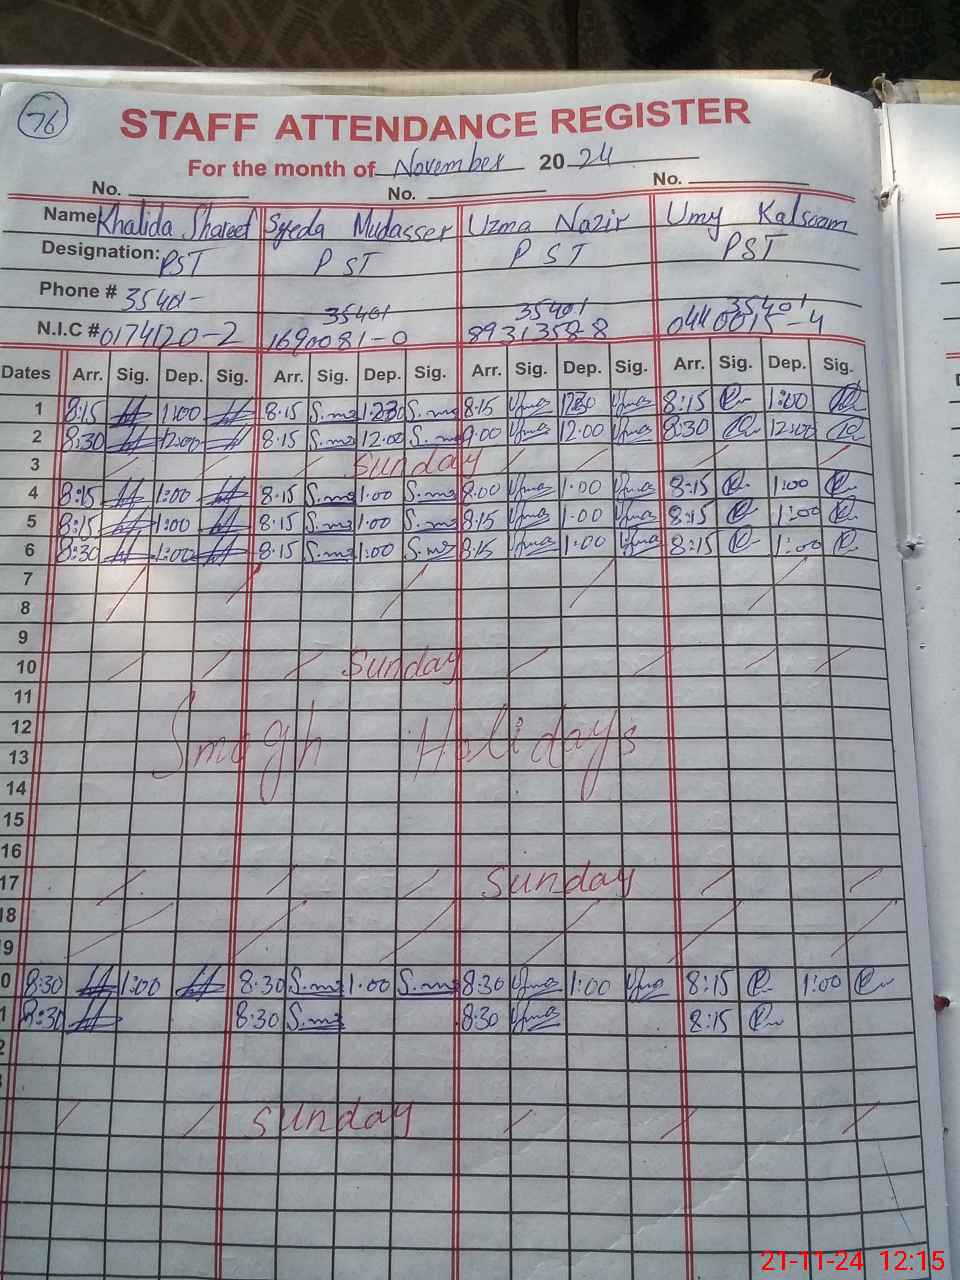 76
STAFF ATTENDANCE REGISTER
For the month of November 2024
No. No. No.
Name Khalida Shareef Syeda Mudasser Uzma Nazir Umy Kalsoom
Designation: PST PST PST PST
Phone # 35401- 35401 35401 35401
N.I.C # 0174120-2 1690081-0 0440015-4
Dates Arr. Sig. Dep. Sig. Arr. Sig. Dep. Sig. Arr. Sig. Dep. Sig. Arr. Sig. Dep. Sig.
1 8:15 1:00 8.15 S.m 8.15 Uzma Uzma 8:15 1:00
2 8:30 12:00 8.15 S.m 12.00 S.m 9.00 Uzma 12.00 Uzma 8:30 12:00
3 Sunday
4 8:15 1:00 8.15 S.m 1.00 S.m 8.00 Uzma 1.00 Uzma 8:15 1:00
5 8:15 1:00 8.15 S.m 1.00 S.m 8.15 Uzma 1.00 Uzma 8:15 1:00
6 8:30 1:00 8.15 S.m 1:00 S.m 8.15 Uzma 1:00 Uzma 8:15 1:00
7
8
9
10 Sunday
11
12 Smogh Holidays
13
14
15
16
17 Sunday
18
9
0 8:30 1:00 8.30 S.m 1.00 S.m 8:30 Uzma 1:00 Uzma 8:15 1:00
1 8:30 8:30 S.m 8:30 Uzma 8:15
2
3
Sunday
21-11-24 12:15